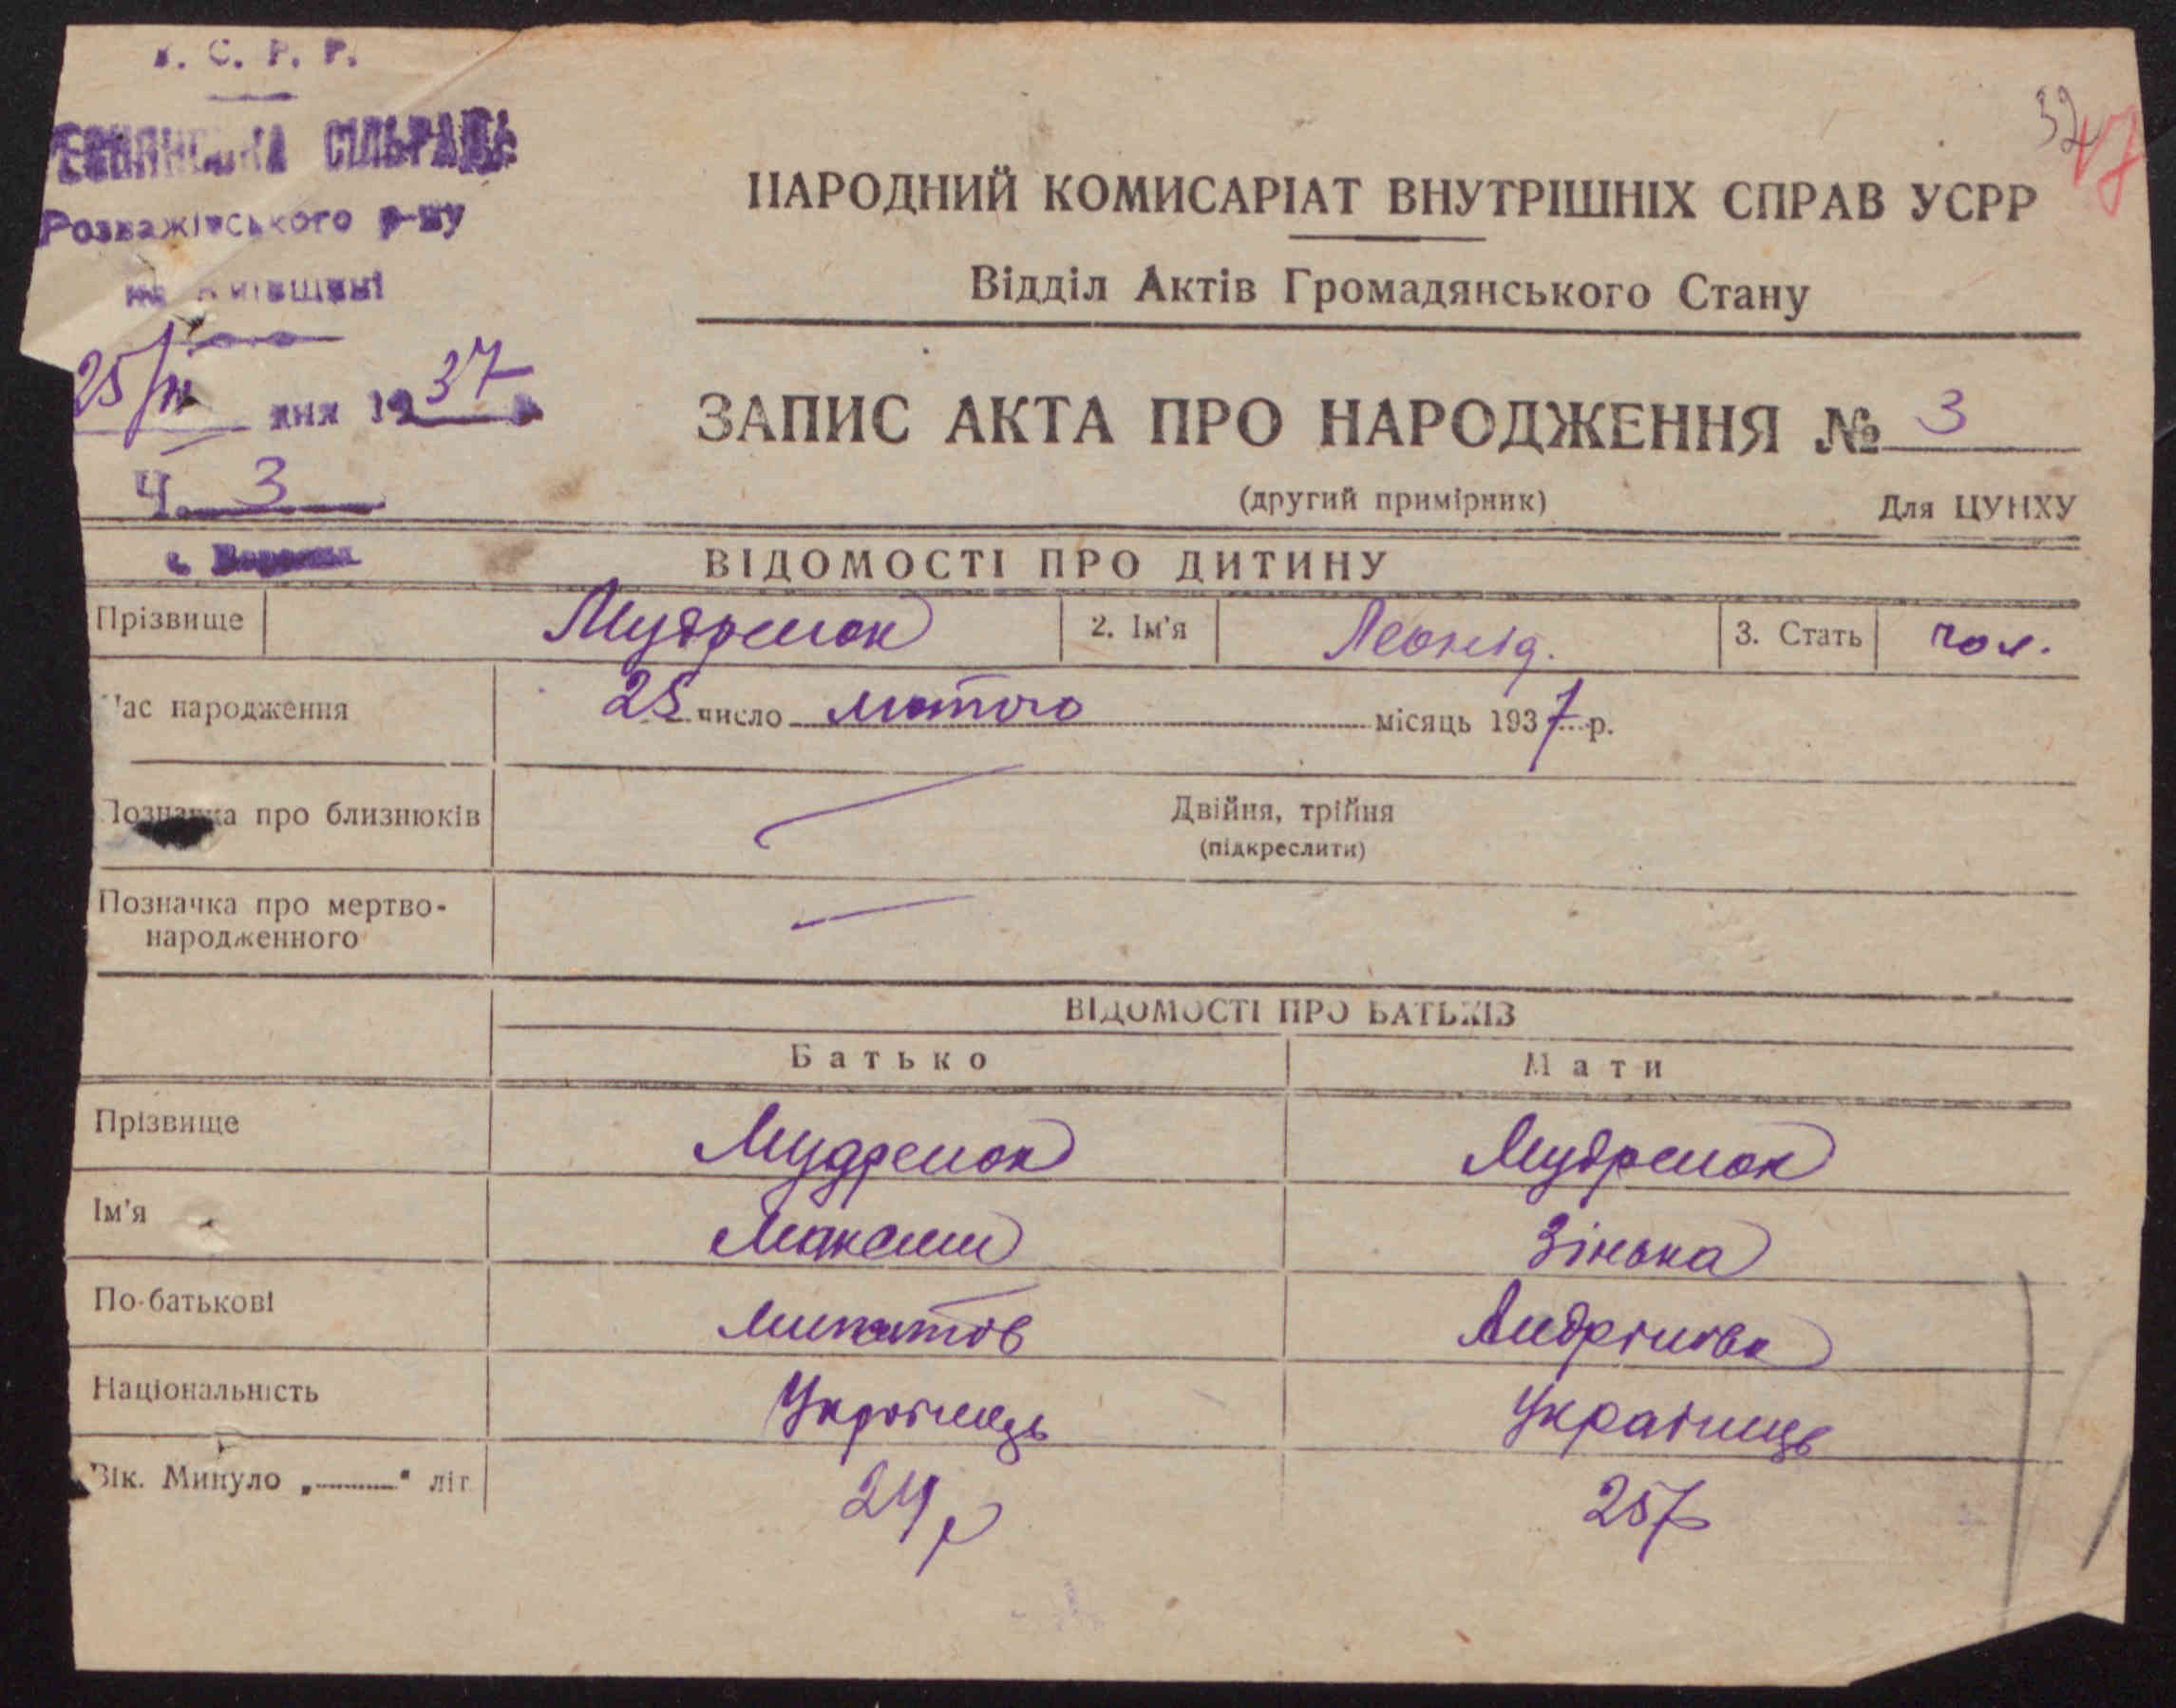 С. Р. Р.
СІЛЬРАДА
Розважівського р-ну
на Київщині
25/II дня 1937
Ч. 3
32
НАРОДНИЙ КОМИСАРІАТ ВНУТРІШНІХ СПРАВ УСРР
Відділ Актів Громадянського Стану
ЗАПИС АКТА ПРО НАРОДЖЕННЯ № 3
(другий примірник) Для ЦУНХУ
ВІДОМОСТІ ПРО ДИТИНУ
Прізвище Мудренок 2. Ім'я Леонід. 3. Стать чол.
Час народження 25 число лютого місяць 1937 р.
Позначка про близнюків Двійня, трійня
(підкреслити)
Позначка про мертво-
народженного
ВІДОМОСТІ ПРО БАТЬКІВ
Батько Мати
Прізвище Мудренок Мудренок
Ім'я Максим Зінька
По-батькові Андріївна
Національність Українець Українець
Вік. Минуло „ " літ 24 р 25 р